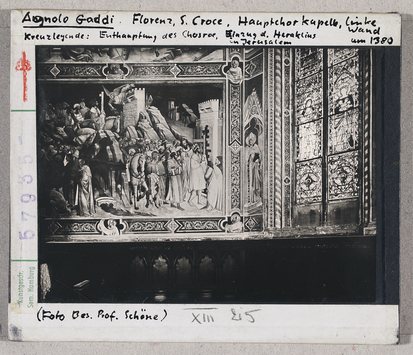 Agnolo Gaddi. Florenz, S. Croce, Hauptchorkapelle, linke Wand
Kreuzlegende: Enthauptung des Chosroe, Einzug d. Heraklius in Jerusalem
um 1380
57985
Kunstgesch.
Sem. Hamburg
(Foto Bes. Prof. Schöne)
XIII 25